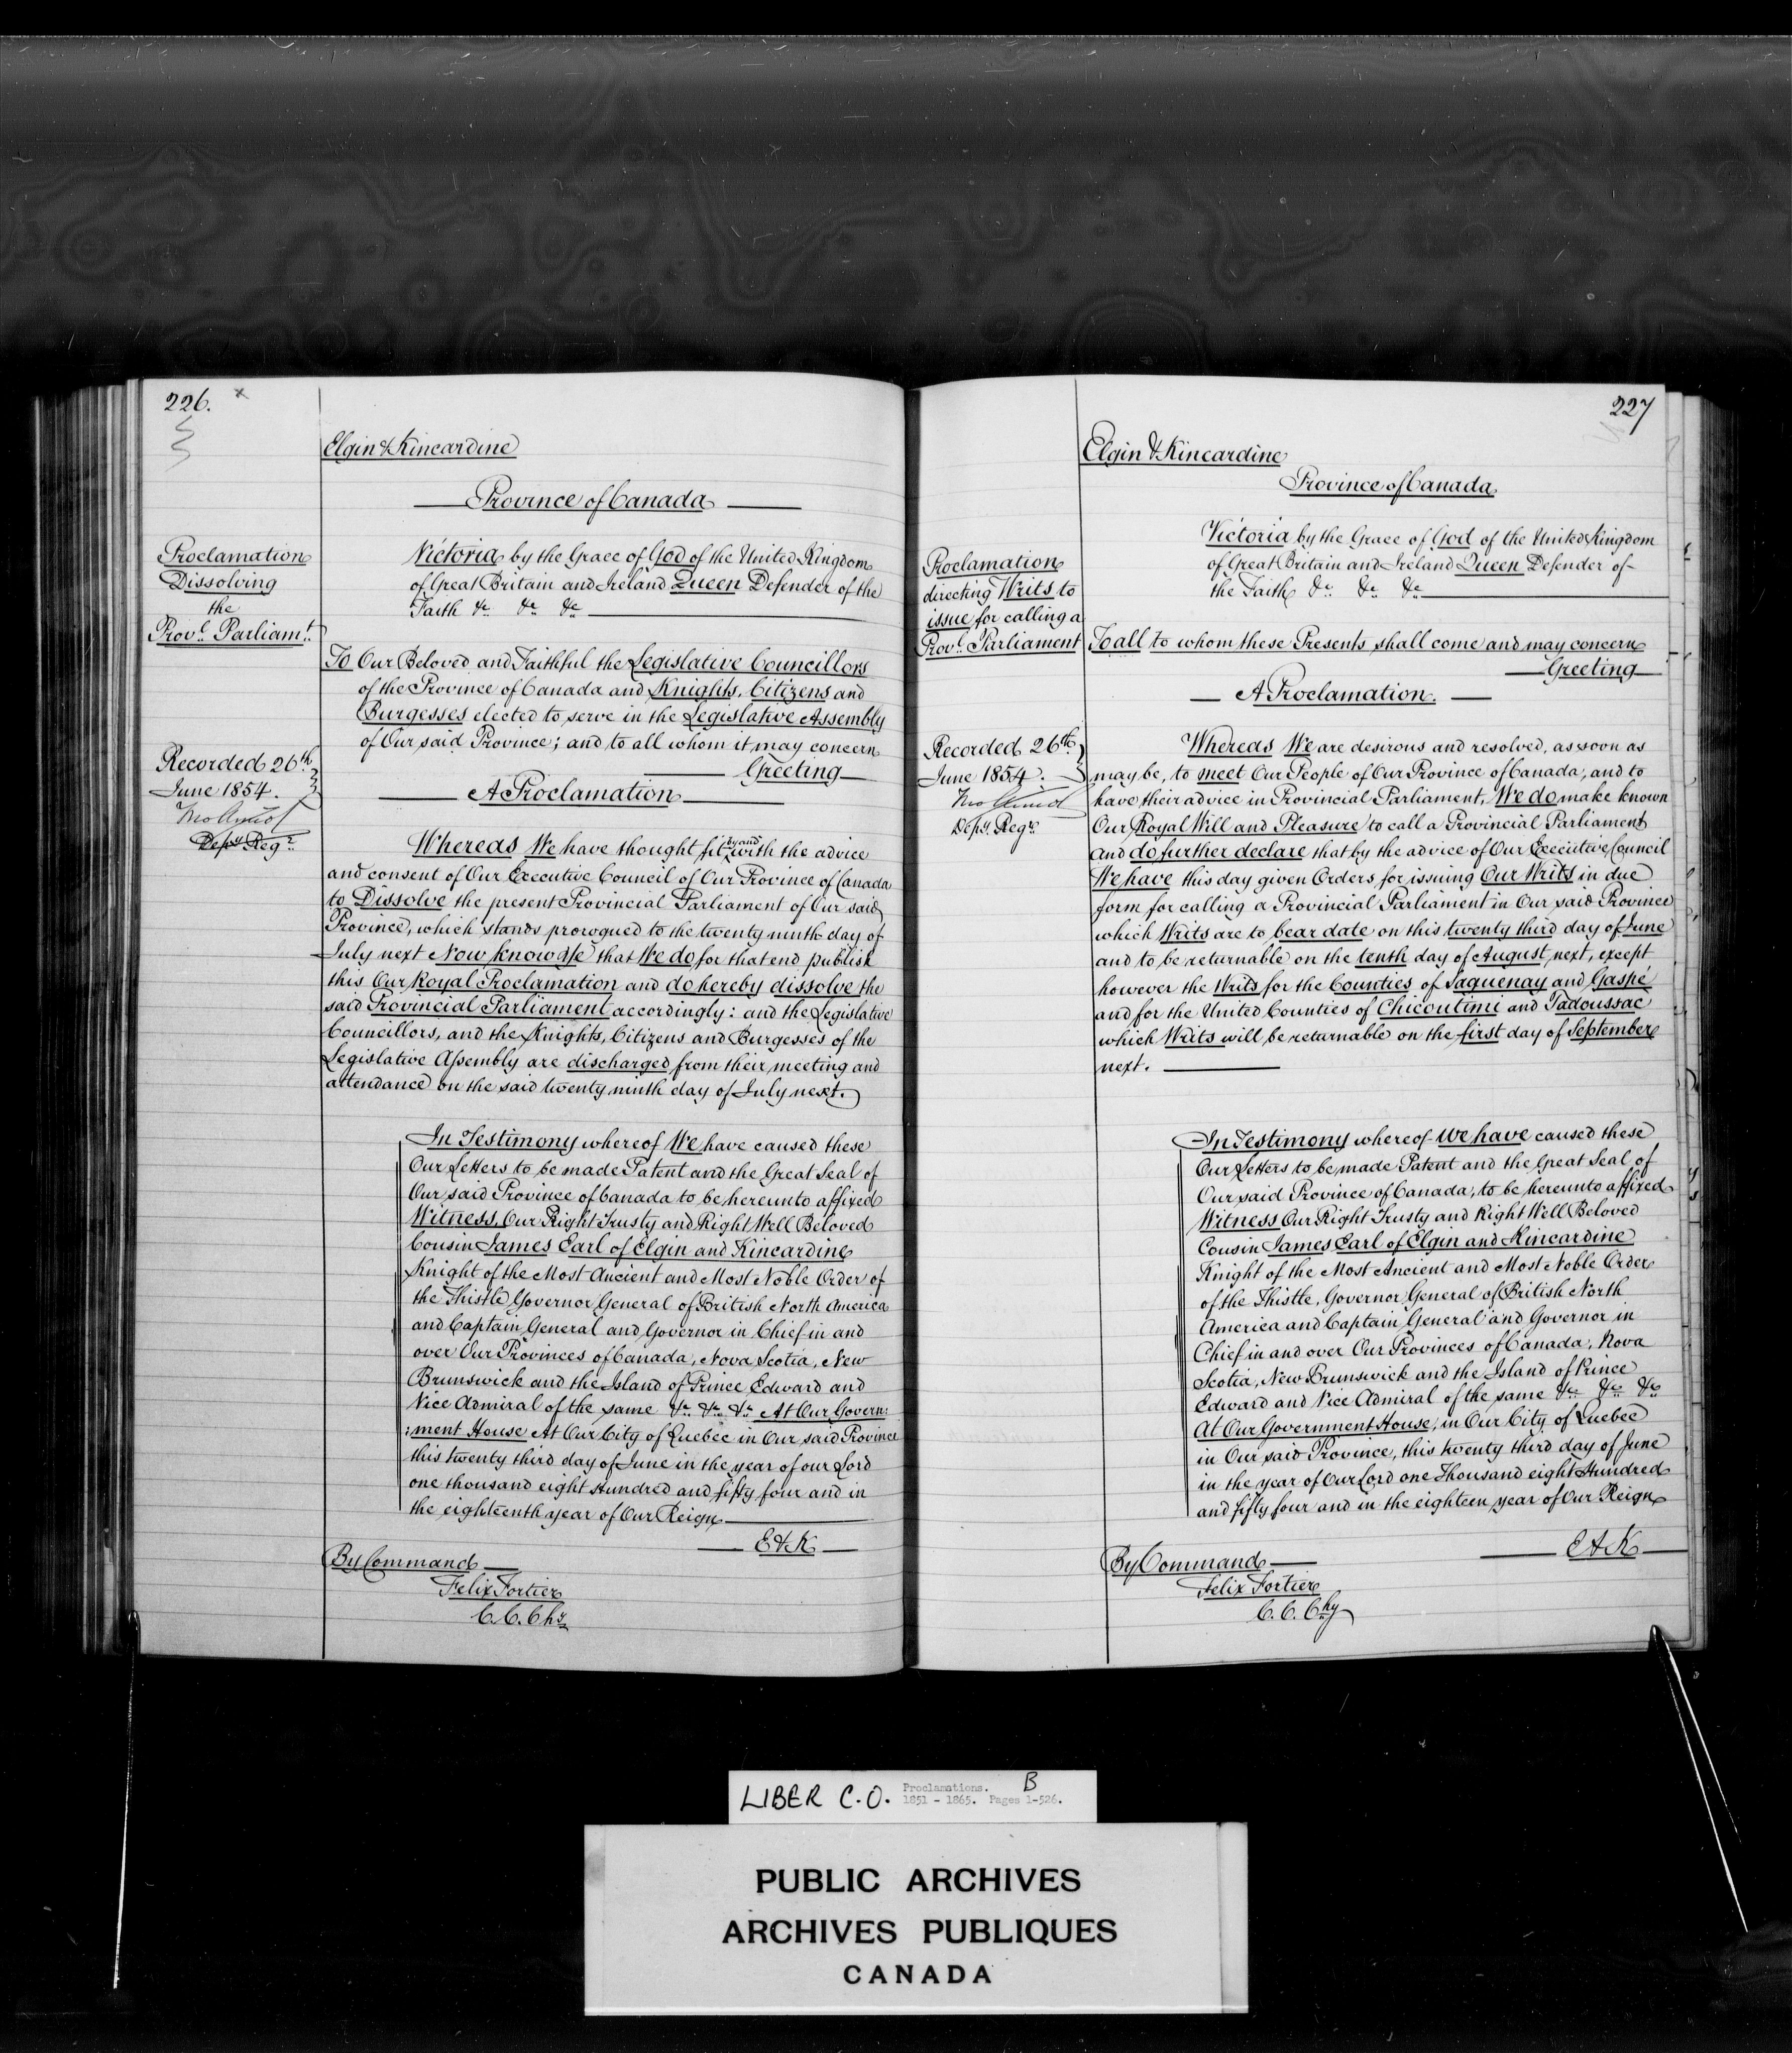 226.
Elgin & Kincardine
Province of Canada
Proclamation
Dissolving
the
Provl. Parliamt.
Victoria by the Grace of God of the United Kingdom
of Great Britain and Ireland Queen Defender of the
Faith &c &c &c
To Our Beloved and Faithful the Legislative Councillors
of the Province of Canada and Knights, Citizens and
Burgesses elected to serve in the Legislative Assembly
of Our said Province; and to all whom it may concern
Greeting
Recorded 26th
June 1854.
Depy Regr.
A Proclamation
Whereas We have thought fit by and with the advice
and consent of Our Executive Council of Our Province of Canada
to Dissolve the present Provincial Parliament of Our said
Province, which stands prorogued to the twenty ninth day of
July next Now know Ye that We do for that end publish
this Our Royal Proclamation and do hereby dissolve the
said Provincial Parliament accordingly: and the Legislative
Councillors, and the Knights, Citizens and Burgesses of the
Legislative Assembly are discharged from their meeting and
attendance on the said twenty ninth day of July next.
In Testimony whereof We have caused these
Our Letters to be made Patent and the Great Seal of
Our said Province of Canada to be hereunto affixed
Witness, Our Right Trusty and Right Well Beloved
Cousin James Earl of Elgin and Kincardine
Knight of the Most Ancient and Most Noble Order of
the Thistle, Governor General of British North America
and Captain General and Governor in Chief in and
over Our Provinces of Canada, Nova Scotia, New
Brunswick and the Island of Prince Edward and
Vice Admiral of the same &c &c &c At Our Govern:
:ment House At Our City of Quebec in Our said Province
this twenty third day of June in the year of our Lord
one thousand eight Hundred and fifty four and in
the eighteenth year of Our Reign
E & K
By Command
Felix Fortier
C. C. Chy
227
Elgin & Kincardine
Province of Canada
Proclamation
directing Writs to
issue for calling a
Provl. Parliament
Victoria by the Grace of God of the United Kingdom
of Great Britain and Ireland Queen Defender of
the Faith &c &c &c
To all to whom these Presents shall come and may concern
Greeting
A Proclamation.
Recorded 26th
June 1854.
Depy. Regr.
Whereas We are desirous and resolved, as soon as
may be, to meet Our People of Our Province of Canada, and to
have their advice in Provincial Parliament, We do make known
Our Royal Will and Pleasure to call a Provincial Parliament
and do further declare that by the advice of Our Executive Council
We have this day given Orders for issuing Our Writs in due
form for calling a Provincial Parliament in Our said Province
which Writs are to bear date on this twenty third day of June
and to be returnable on the tenth day of August next, except
however the Writs for the Counties of Saguenay and Gaspé
and for the United Counties of Chicoutimi and Tadoussac
which Writs will be returnable on the first day of September
next.
In Testimony whereof We have caused these
Our Letters to be made Patent and the Great Seal of
Our said Province of Canada, to be hereunto affixed
Witness Our Right Trusty and Right Well Beloved
Cousin James Earl of Elgin and Kincardine
Knight of the Most Ancient and Most Noble Order
of the Thistle, Governor General of British North
America and Captain General and Governor in
Chief in and over Our Provinces of Canada, Nova
Scotia, New Brunswick and the Island of Prince
Edward and Vice Admiral of the same &c &c &c
At Our Government House, in Our City of Quebec
in Our said Province, this twenty third day of June
in the year of Our Lord one Thousand eight Hundred
and fifty four and in the eighteen year of Our Reign
E & K
By Command
Felix Fortier
C. C. Chy
LIBER C.O. Proclamations. B
1851 - 1865. Pages 1-526.
PUBLIC ARCHIVES
ARCHIVES PUBLIQUES
CANADA